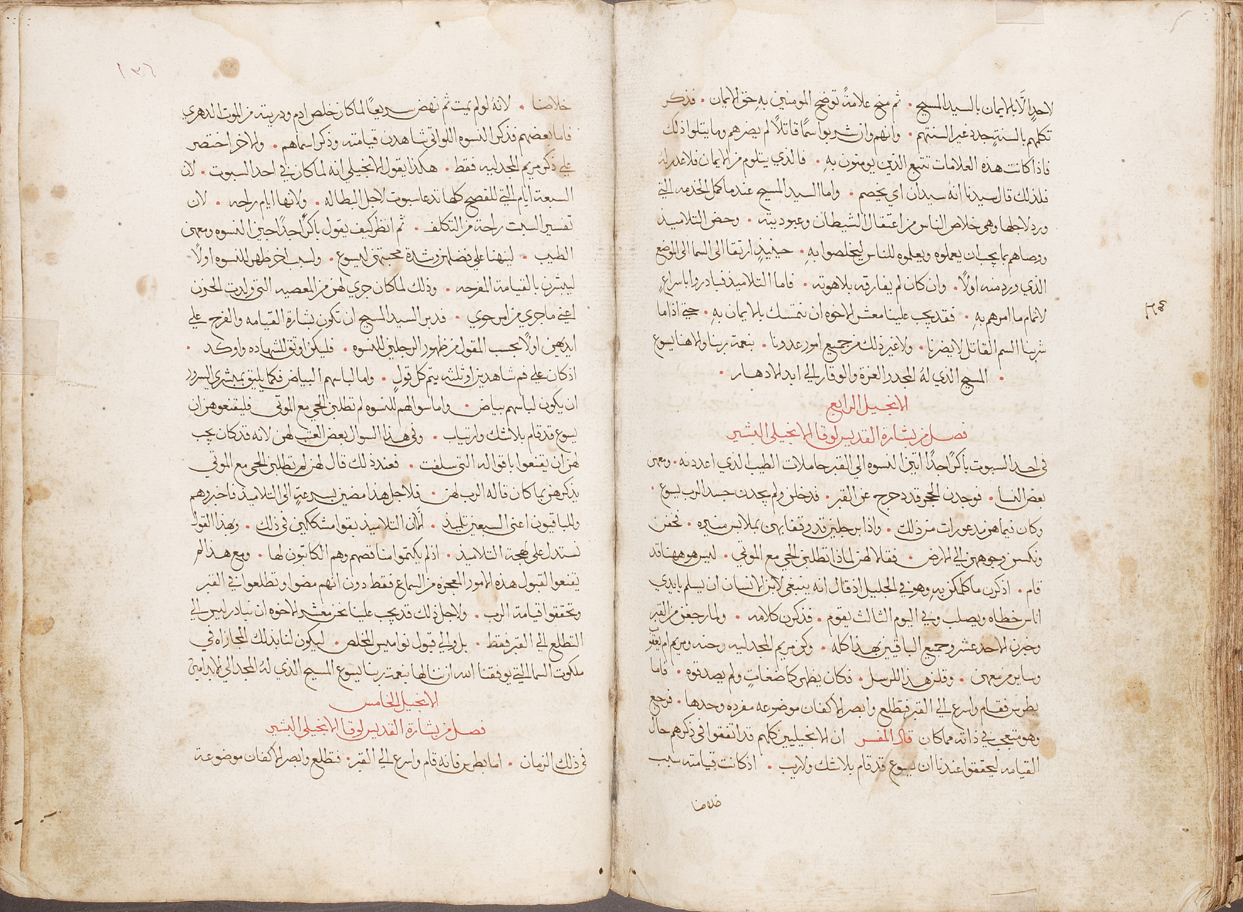 لاجل الايمان بالسيد المسيح . ثم منح علامةً توضح المومنين به حق الايمان . فذكر
تكلمهم بالسنةٍ جددة غير السنتهم . وانهم وان شربوا سمًا قاتلًا لم يضرهم وما يتلوا ذلك
فاذا كانت هذه العلامات تتبع الذين يومنون به . فالذي يتلوم من الايمان فلا عذر له
فلذلك قال سيدنا انه سيدان اي يخصم . واما السيد المسيح عندما كمل الخدمه التي
ورد لاجلها وهي خلاص الناس من اعتقال الشيطان وعبوديته . وحض التلاميذ
ووصاهم بما يجب ان يعملوه ويعلموه للناس ليخلصوا به . حينيذٍ ارتقا الى السما الى الموضع
الذي ورد منه اولًا . وان كان لم يفارقه بلاهوته . فاما التلاميذ فبادروا باسراعٍ
لاتمام ما امرهم به . فقد يجب علينا معشر الاخوه ان نتمسك بالايمان به . حتى اذا ما
شربنا السم القاتل لا يضرنا . ولا غير ذلك من جميع امور عدونا . بنعمة ربنا والاهنا يسوع
المسيح الذي له المجد والعزة والوقار الى ابد الادهار .
الانجيل الرابع
فصل من بشارة القديس لوقا الانجيلي البشير
في احد السبوت باكرًا جدًا اتين النسوه الى القبر حاملات الطيب الذي اعددنه . ومعهن
بعض النسا . فوجدن الحجر قد دحرج عن القبر . فدخلن ولم يجدن جسد الرب يسوع .
وكان فيما هن مذعورات من ذلك . واذا برجلين قد وقفا بهن بملابس منيره . فخفن
ونكسن وجوههن الى الارض . فقالا لهن لماذا تطلبن الحي مع الموتي . ليس هو ههنا قد
قام . اذكرن ما كلمكن به وهو في الجليل اذ قال انه ينبغي لابن الانسان ان يسلم بايدي
اناس خطاه ويصلب وفي اليوم الثالث يقوم . فذكرن كلامه . ولما رجعن من القبر
وخبرن الاحد عشر وجميع الباقيين بهذا كله . وكن مريم المجدليه وحنه ومريم ام يعقوب
وساير من معهن . وقلن هذا للرسل . فكان يظهر كاضغاث ولم يصدقوه . فاما
بطرس فقام واسرع الى القبر فتطلع وابصر الاكفان موضوعه مفرده وحدها . فرجع
وهو متعجب في ذاته مما كان قال المفسر ان الانجيليين كلهم قد اتفقوا في ذكرهم حال
القيامه ليحققوا عندنا ان يسوع قد قام بلا شك ولا ريب . اذ كانت قيامته سبب
خلاصنا
٣٤
١٣٦
خلاصنا . لانه لو لم يمت ثم نهض سريعًا لما كان خلص ادم وذريته من الموت الدهري
فاما بعضهم فذكروا النسوه اللواتي شاهدن قيامته وذكر اسماهم . والاخر اختصر
على ذكر مريم المجدليه فقط . هكذا يقول الانجيلي انه لما كان في احد السبوت . لان
السبعة ايام التي للفصح كلها تدعا سبوت لاجل البطاله . ولانها ايام راحه . لان
تفسير السبت راحة من التكلف . ثم انظر كيف يقول باكرًا جدًا جين النسوه ومعهن
الطيب . لينها على فضلهن وشدة محبتهن ليسوع . ولسبب اخر ظهر للنسوه اولًا
ليبشرن بالقيامة المفرحه . وذلك لما كان جري لهن من المعصيه التي ولدت الحزن
اعني ما جري من امر حوي . فدبر السيد المسيح ان تكون بشارة القيامه والفرح على
ايديهن اولًا بحسب المقول من ظهور الرجلين للنسوه . فليكن اوثق للشهاده واوكد .
اذ كان على فم شاهدين او ثلثه يتم كل قولٍ . واما لباسهم البياض فكما يليق بمبشري السرور
ان يكون لباسهم بياض . واما سوالهم للنسوه لم تطلبن الحي مع الموتي فليقنعوهن ان
يسوع قد قام بلا شك وارتياب . وفي هذا السوال بعض العتب لهن لانه قد كان يجب
لهن ان يقنعوا باقواله التي سلفت . فعند ذلك قال لهن لم تطلبن الحي مع الموتي
بذكرهن بما كان قاله الرب لهن . فلاجل هذا مضين بسرعةٍ الى التلاميذ فاخبروهم
والباقون اعني السبعين تلميذ . الا ان التلاميذ بقوا مشككين في ذلك . وبهذا القول
نستدل على صحة التلاميذ . اذ لم يكتموا مناقصهم وهم الكاتبون لها . ومع هذا لم
يقنعوا لقبول هذه الامور المعجزه من السماع فقط دون انهم مضوا وتطلعوا في القبر
وتحققوا قيامة الرب . ولاجل ذلك قد يجب علينا نحن معشر الاخوه ان نبادر ليس الى
التطلع الى القبر فقط . بل والى قبول نواميس المخلص . ليكون لنا بذلك المجازاه في
ملكوت السما التي يوفقنا الله ان ننالها بنعمة ربنا يسوع المسيح الذي له المجد الى الابد امين
الانجيل الخامس
فصل من بشارة القديس لوقا الانجيلي البشير
في ذلك الزمان . اما بطرس فانه قام واسرع الى القبر . فتطلع وابصر الاكفان موضوعة